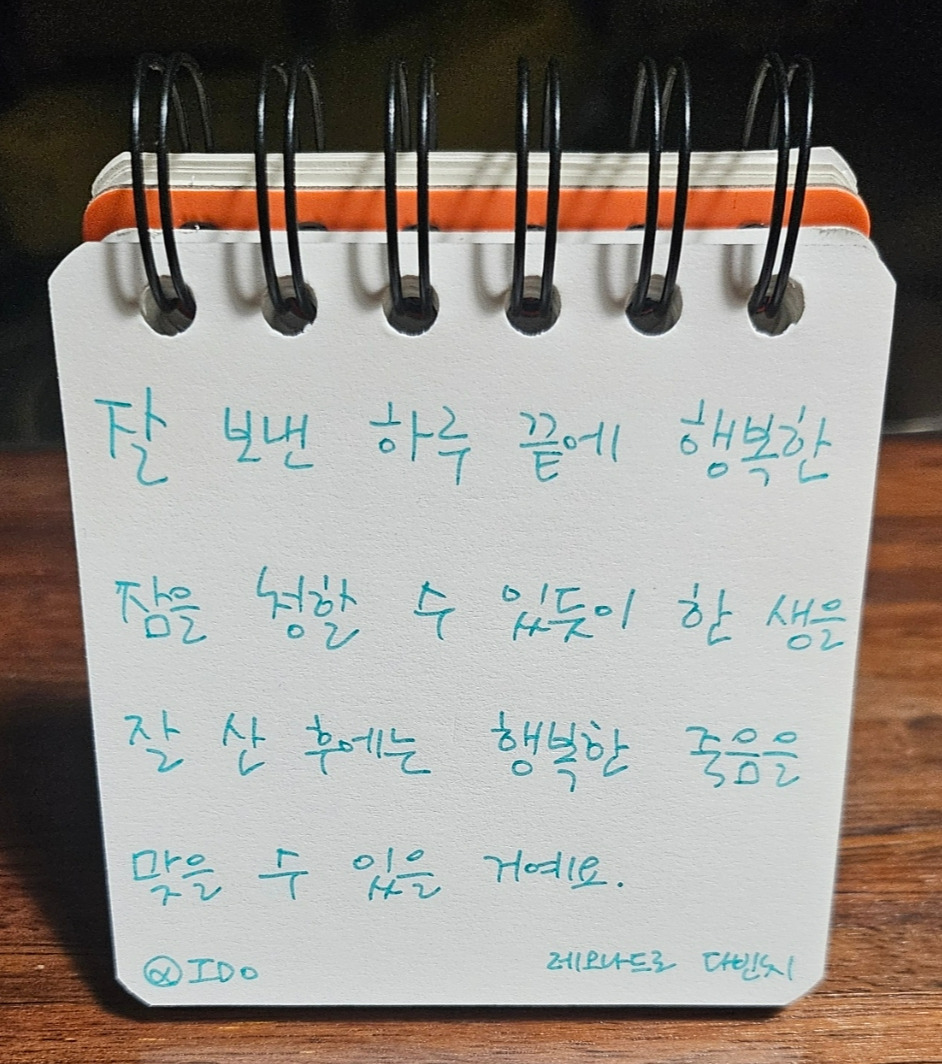 잘 보낸 하루 끝에 행복한
잠을 청할 수 있듯이 한 생을
잘 산 후에는 행복한 죽음을
맞을 수 있을 거예요.
ⓧIDO 레오나드로 다빈치